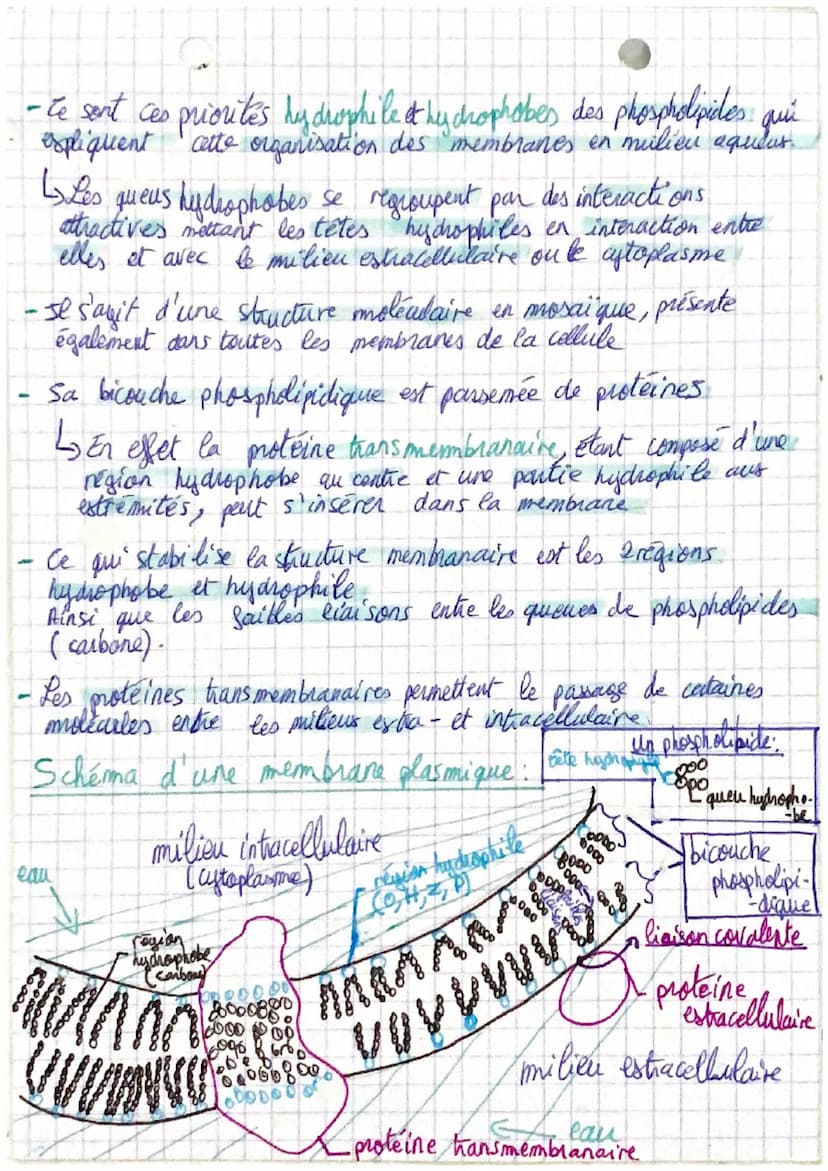 - Ce sont ces priorités hydrophile et hydrophobes des phospholipides qui
expliquent cette organisation des membranes en milieu aqueux.
↳ Les queus hydrophobes se regroupent par des interactions
attractives mettant les têtes hydrophiles en interaction entre
elles et avec le milieu extracellulaire ou le cytoplasme
- Il s'agit d'une structure moléculaire en mosaïque, présente
également dans toutes les membranes de la cellule
- Sa bicouche phospholipidique est parsemée de protéines
↳ En effet la protéine transmembranaire, étant composé d'une
région hydrophobe au centre et une partie hydrophile aux
extrémités, peut s'insérer dans la membrane
- Ce qui stabilise la structure membranaire est les 2 régions
hydrophobe et hydrophile
Ainsi que les faibles liaisons entre les queues de phospholipides
(carbone).
- Les protéines transmembranaires permettent le passage de certaines
molécules entre les milieux extra- et intracellulaire.
Schéma d'une membrane plasmique :
un phospholipide :
tête hydrophyle
queu hydropho-
-be
milieu intracellulaire
(cytoplasme)
eau
région hydrophile
(O, H, Z, P)
bicouche
phospholipi-
-dique
faibles
liaisons
région
hydrophobe
(carbone)
liaison covalente
protéine
extracellulaire
milieu extracellulaire
eau
protéine transmembranaire